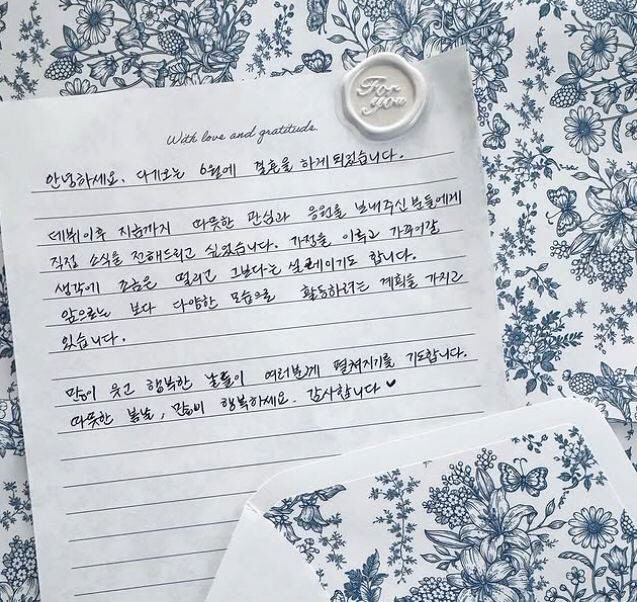 For
you
With love and gratitude
안녕하세요. 다가오는 6월에 결혼을 하게 되었습니다.
데뷔 이후 지금까지 따뜻한 관심과 응원을 보내주신 분들에게
직접 소식을 전해드리고 싶었습니다. 가정을 이루고 가꾸어갈
생각에 조금은 떨리고 그보다는 설레이기도 합니다.
앞으로는 보다 다양한 모습으로 활동하려는 계획을 가지고
있습니다.
많이 웃고 행복한 날들이 여러분께 펼쳐지기를 기도합니다.
따뜻한 봄날, 많이 행복하세요. 감사합니다 ♥